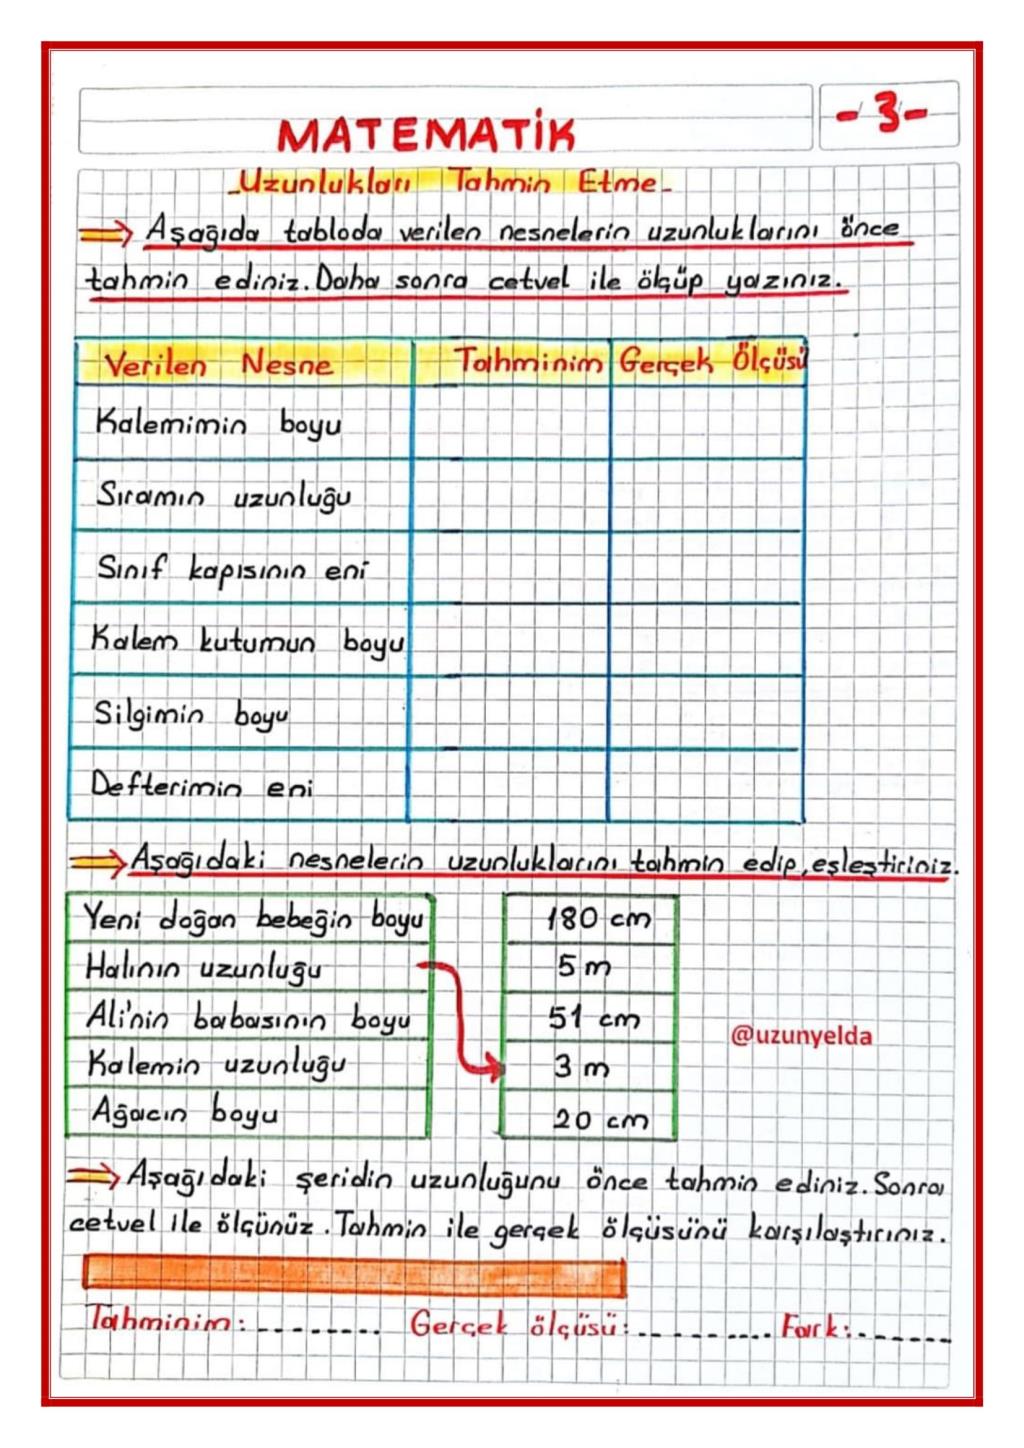 MATEMATİK
-3-
_Uzunlukları Tahmin Etme_
Aşağıda tabloda verilen nesnelerin uzunluklarını önce
tahmin ediniz. Daha sonra cetvel ile ölçüp yazınız.
Verilen Nesne Tahminim Gerçek Ölçüsü
Kalemimin boyu
Sıramın uzunluğu
Sınıf kapısının eni
Kalem kutumun boyu
Silgimin boyu
Defterimin eni
Aşağıdaki nesnelerin uzunluklarını tahmin edip, eşleştiriniz.
Yeni doğan bebeğin boyu 180 cm
Halının uzunluğu 5 m
Ali'nin babasının boyu 51 cm
@uzunyelda
Kalemin uzunluğu 3 m
Ağacın boyu 20 cm
Aşağıdaki şeridin uzunluğunu önce tahmin ediniz. Sonra
cetvel ile ölçünüz. Tahmin ile gerçek ölçüsünü karşılaştırınız.
Tahminim:......... Gerçek ölçüsü:.......... Fark:........